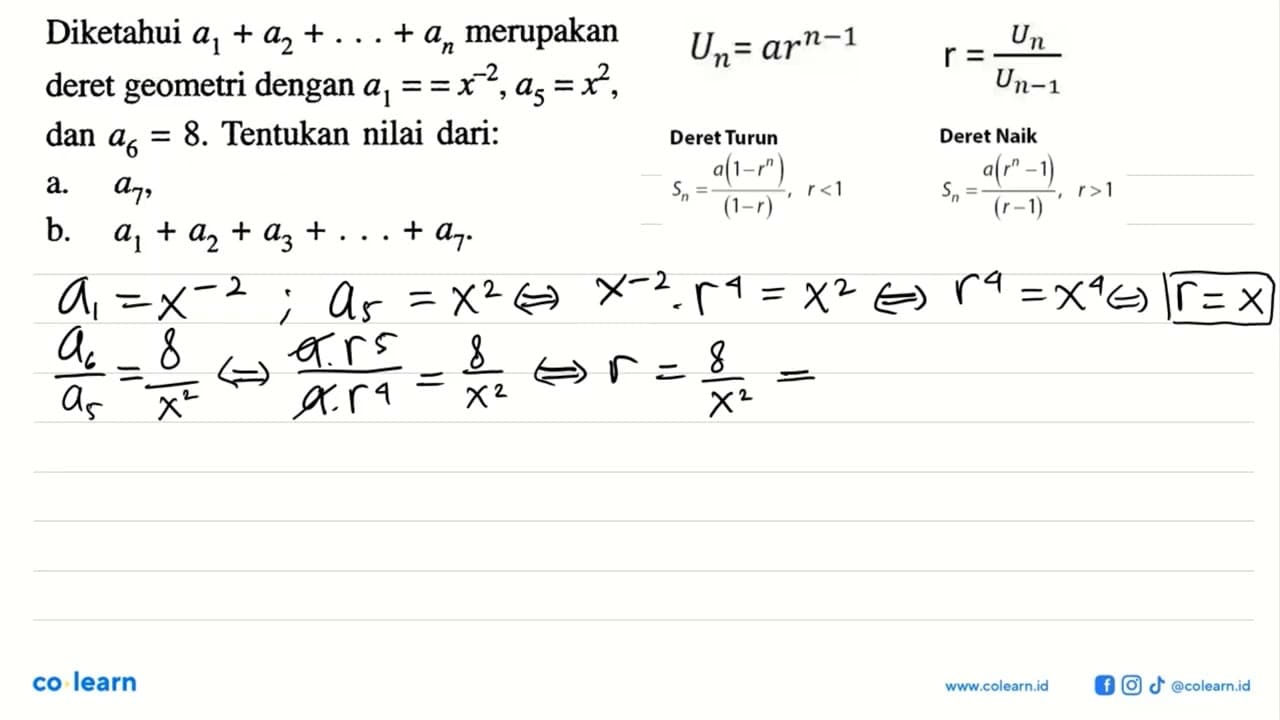 Diketahui a₁ + a₂ + . . . + aₙ merupakan
deret geometri dengan a₁ = = x⁻², a₅ = x²,
dan a₆ = 8. Tentukan nilai dari:
a. a₇,
b. a₁ + a₂ + a₃ + . . . + a₇.
Uₙ = arⁿ⁻¹
r = Uₙ / Uₙ₋₁
Deret Turun
Sₙ = a(1−rⁿ) / (1−r), r < 1
Deret Naik
Sₙ = a(rⁿ−1) / (r−1), r > 1
a₁ = x⁻² ; a₅ = x² ⇔ x⁻² . r⁴ = x² ⇔ r⁴ = x⁴ ⇔ r = x
a₆ / a₅ = 8 / x² ⇔ a.r⁵ / a.r⁴ = 8 / x² ⇔ r = 8 / x² =
co learn
www.colearn.id
@colearn.id